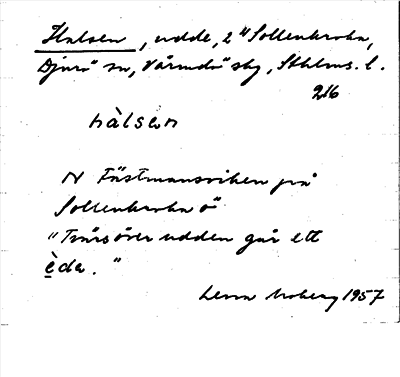 Halsen, udde, 2 "Sollenkroka,
Djurö sn, Värmdö skg, Sthlms. l.
216
hàlsen
N Fästmansviken på
Sollenkroka ö
"Tvärsöver udden går ett
èda."
Lena Moberg 1957